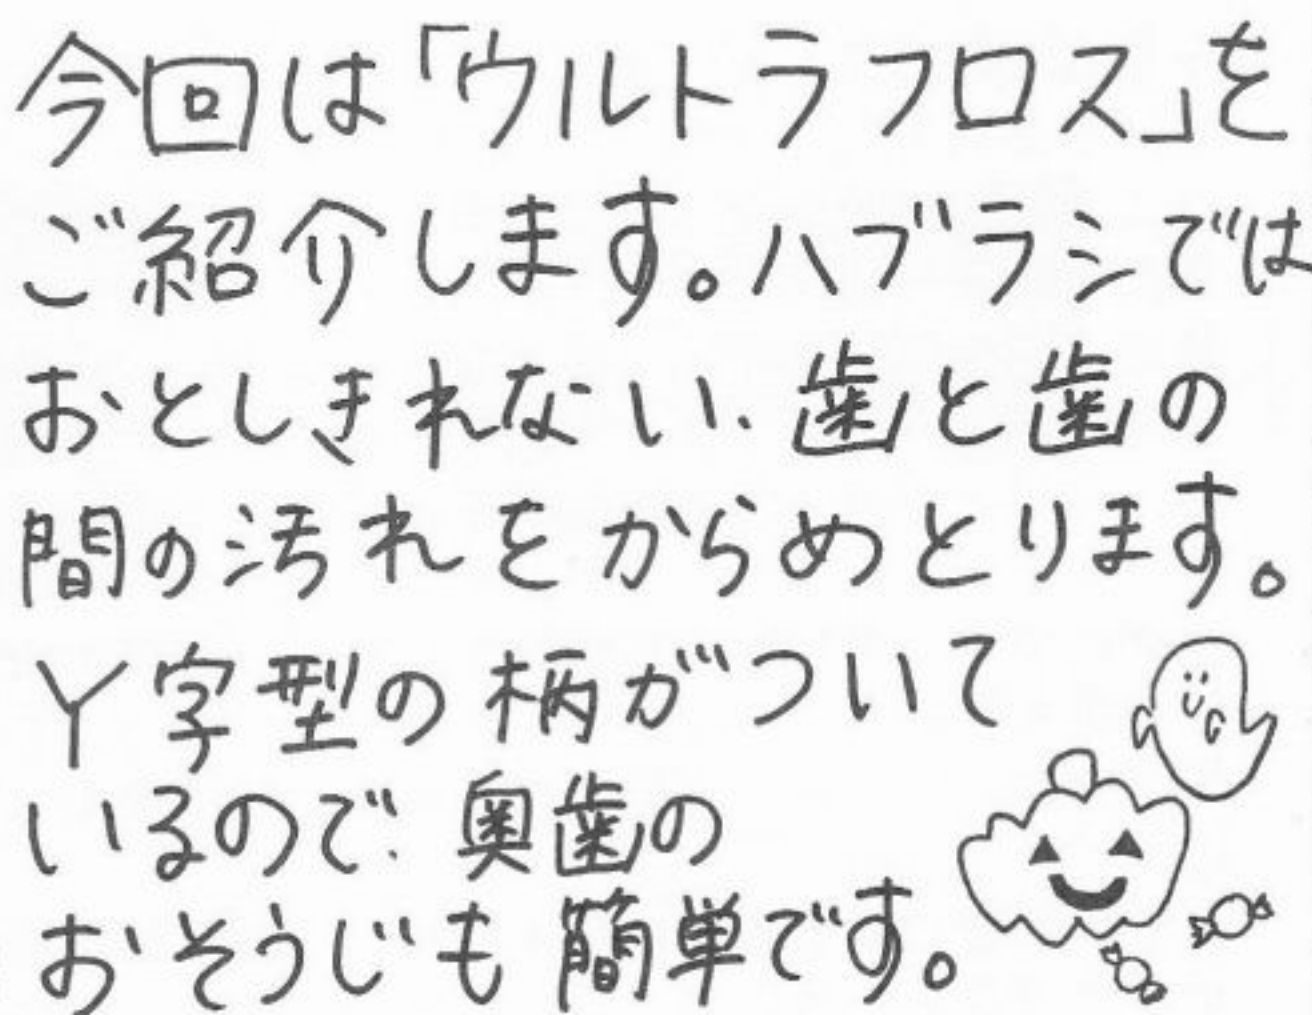 今回は「ウルトラフロス」を
ご紹介します。ハブラシでは
おとしきれない、歯と歯の
間の汚れをからめとります。
Y字型の柄がついて
いるので、奥歯の
おそうじも簡単です。